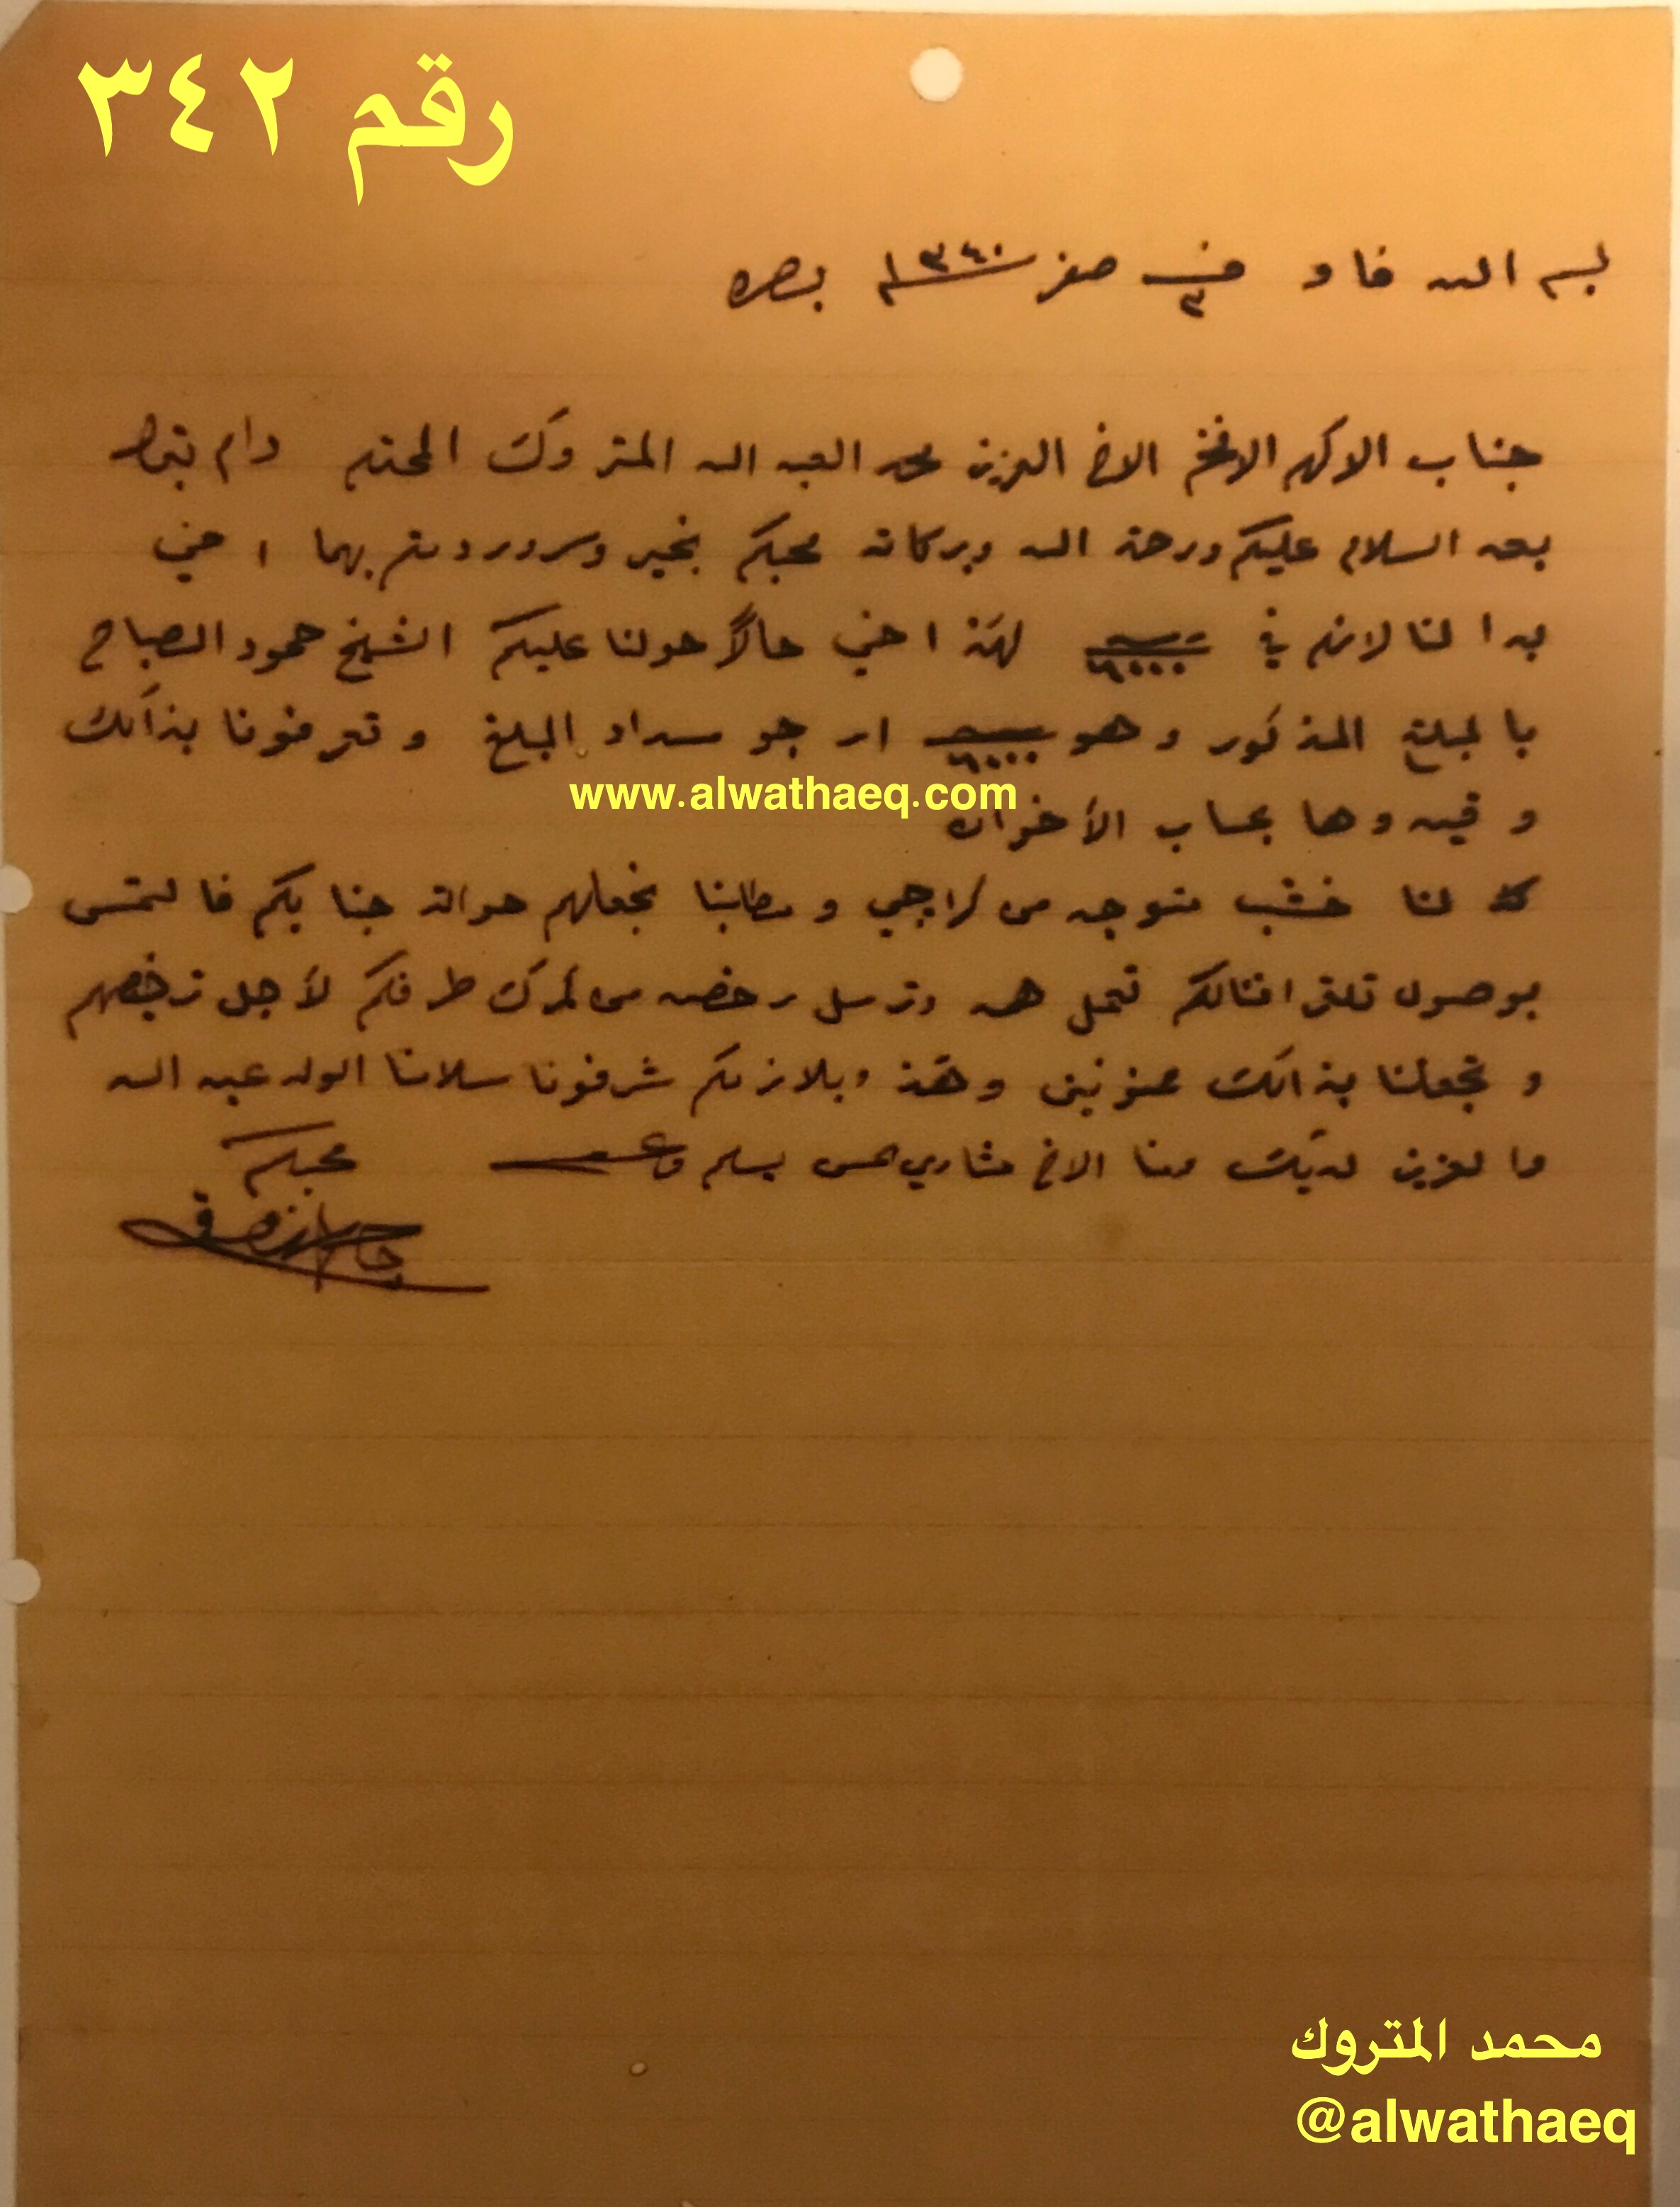 رقم ٣٤٢
بسم الله فاو في ٣ صفر ١٣٤٠ بصره
جناب الاكرم الافخم الاخ العزيز محمد العبد الله المتروك المحترم دام بقاه
بعد السلام عليكم ورحمة الله وبركاته محبكم بخير وسرور دمتم بهما اخي
بدا لنا لازم في ٦٠٠٠٠ لهذا اخي حالاً حولنا عليكم الشيخ حمود الصباح
بالمبلغ المذكور وهو ٦٠٠٠٠ ارجو سداد المبلغ وتعرفونا بذالك
www.alwathaeq.com
وقيدوها بحساب الأخوان
لنا خشب متوجه من كراچي ومطلبنا نجعلهم حوالة جنابكم فالتمس
بوصول تلغرافنالكم تعمل همه وترسل رخصه من گمرك طرفكم لأجل ترخصهم
وتجعلنا بذالك ممنونين وهذا وبلازمكم شرفونا سلامنا الولد عبد الله
والعزيز لديك ومنا الاخ مشاري الحسن يسلم
محبكم
حامد
محمد المتروك
@alwathaeq